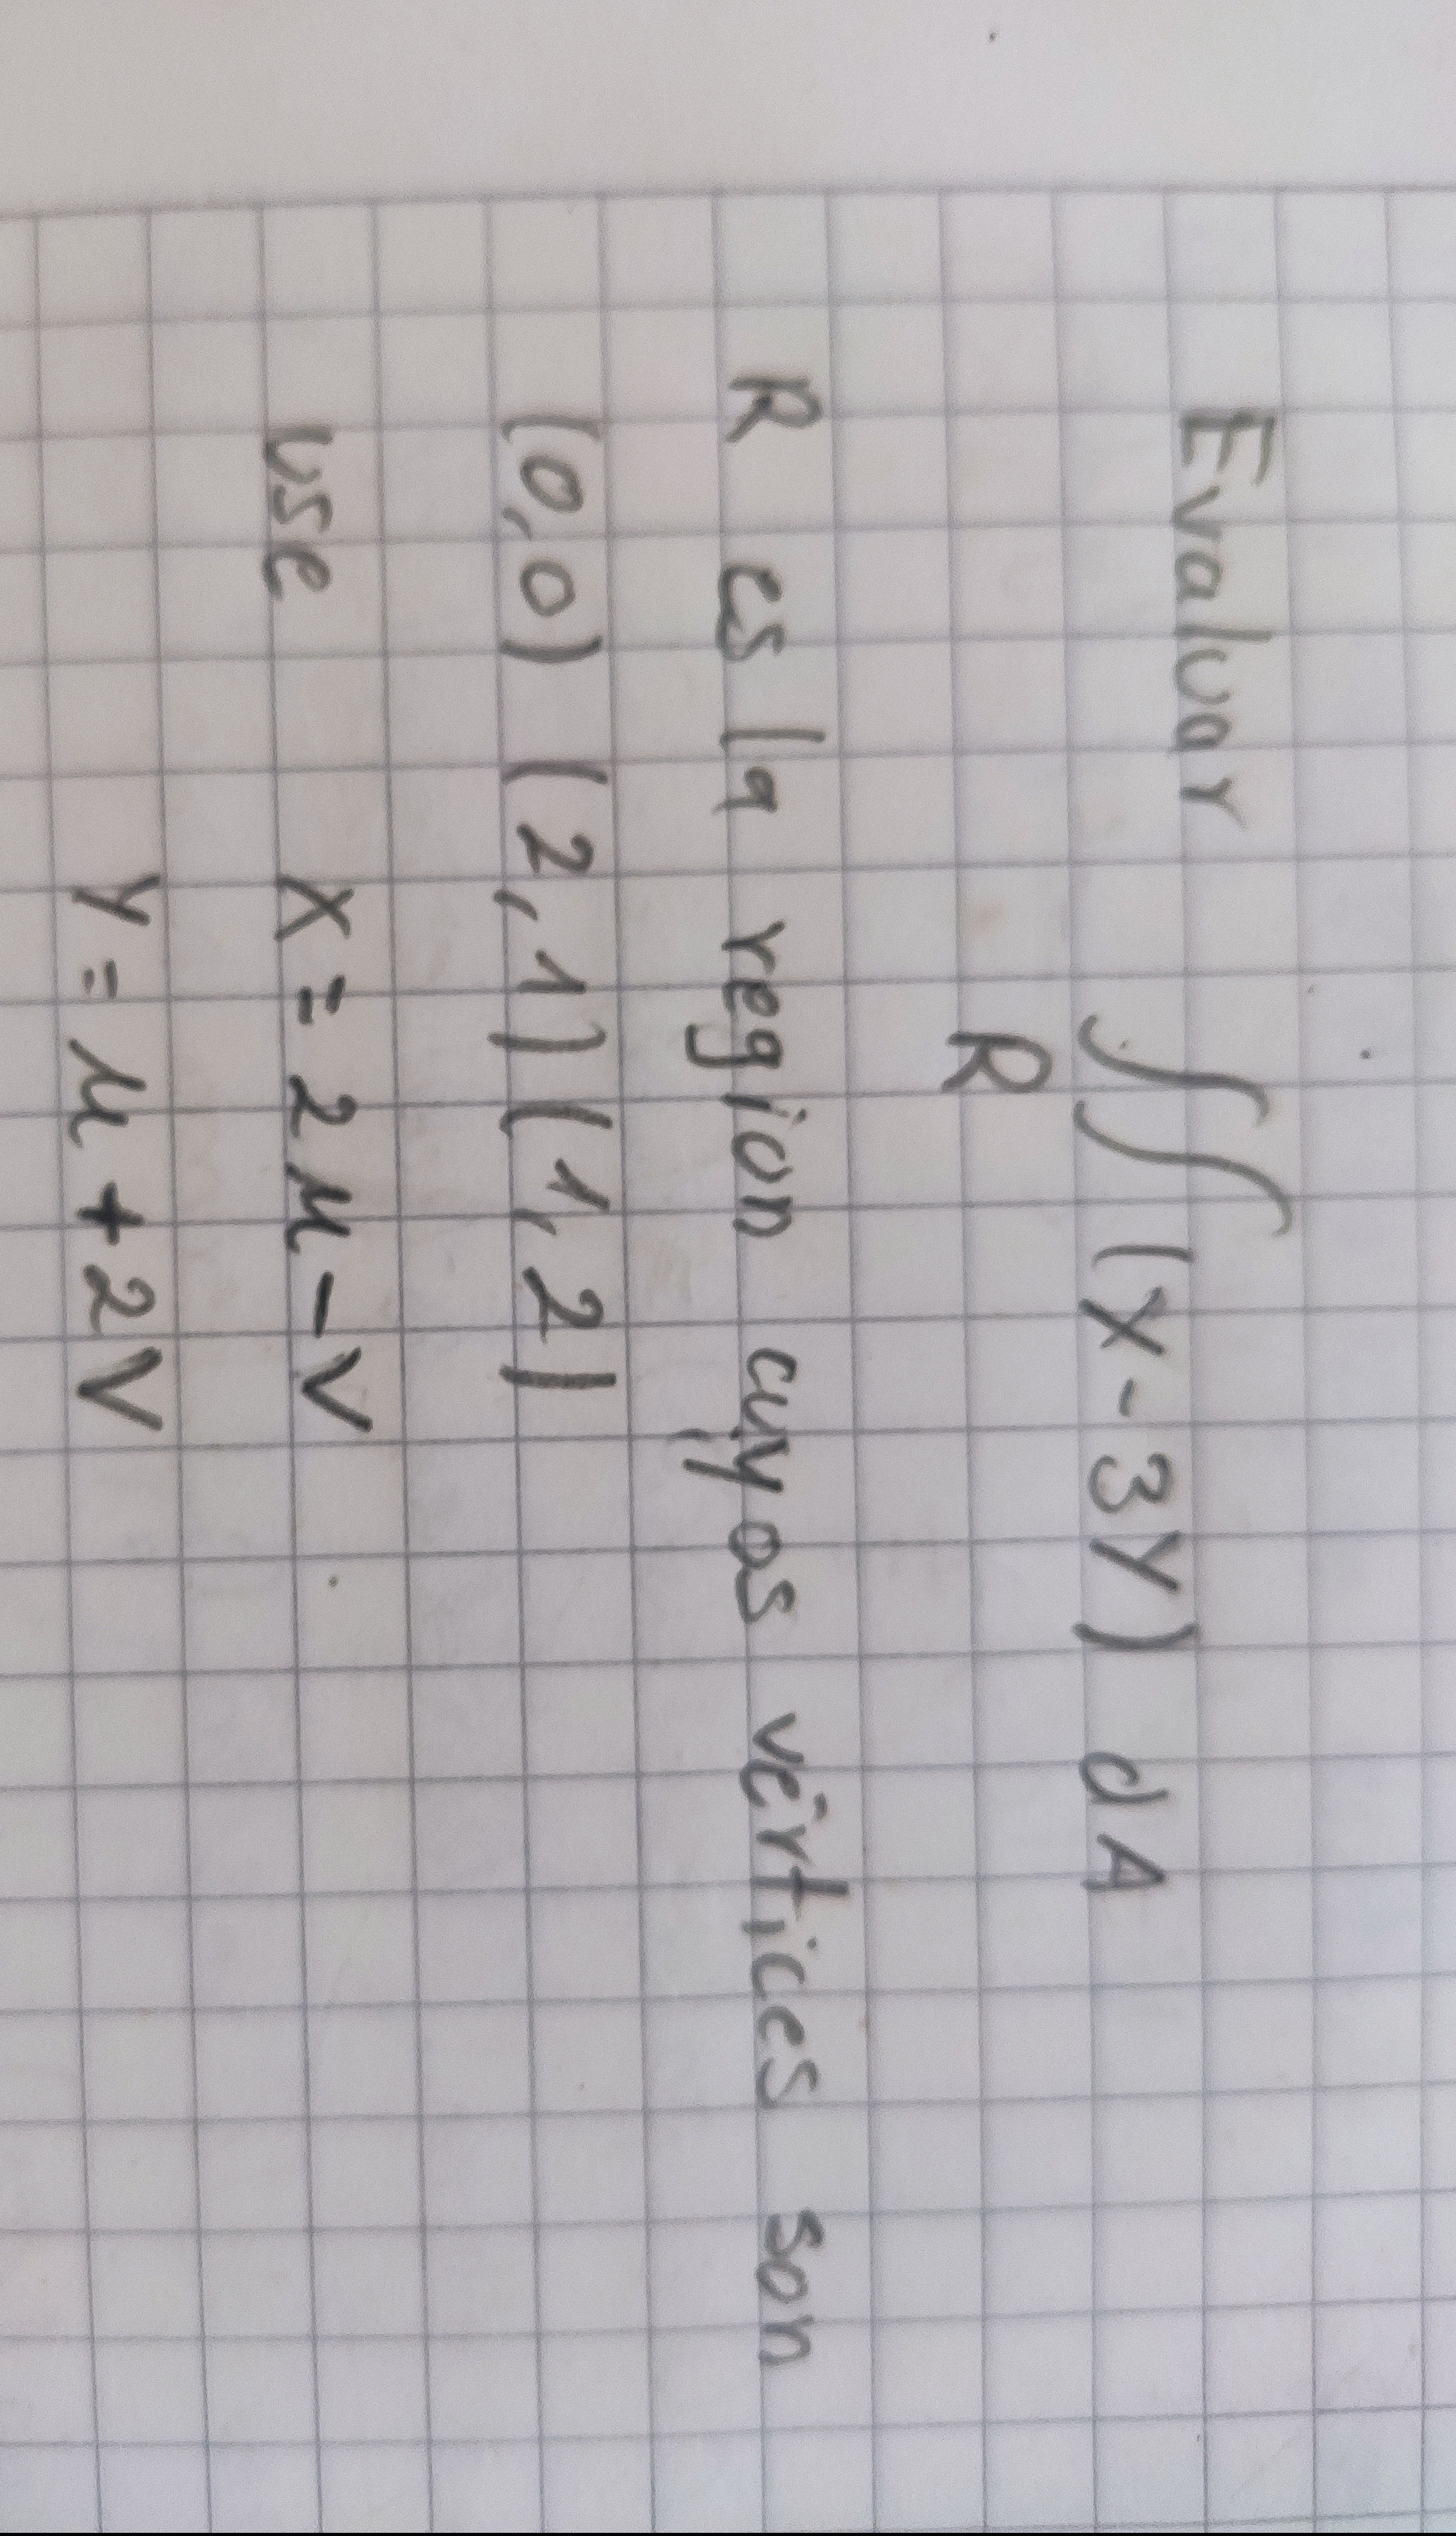 Evaluar ∫∫ (x-3y) dA
R
R es la region cuyas vértices son
(0,0) (2,1) (1,2)
use x = 2μ - v
y = μ + 2v